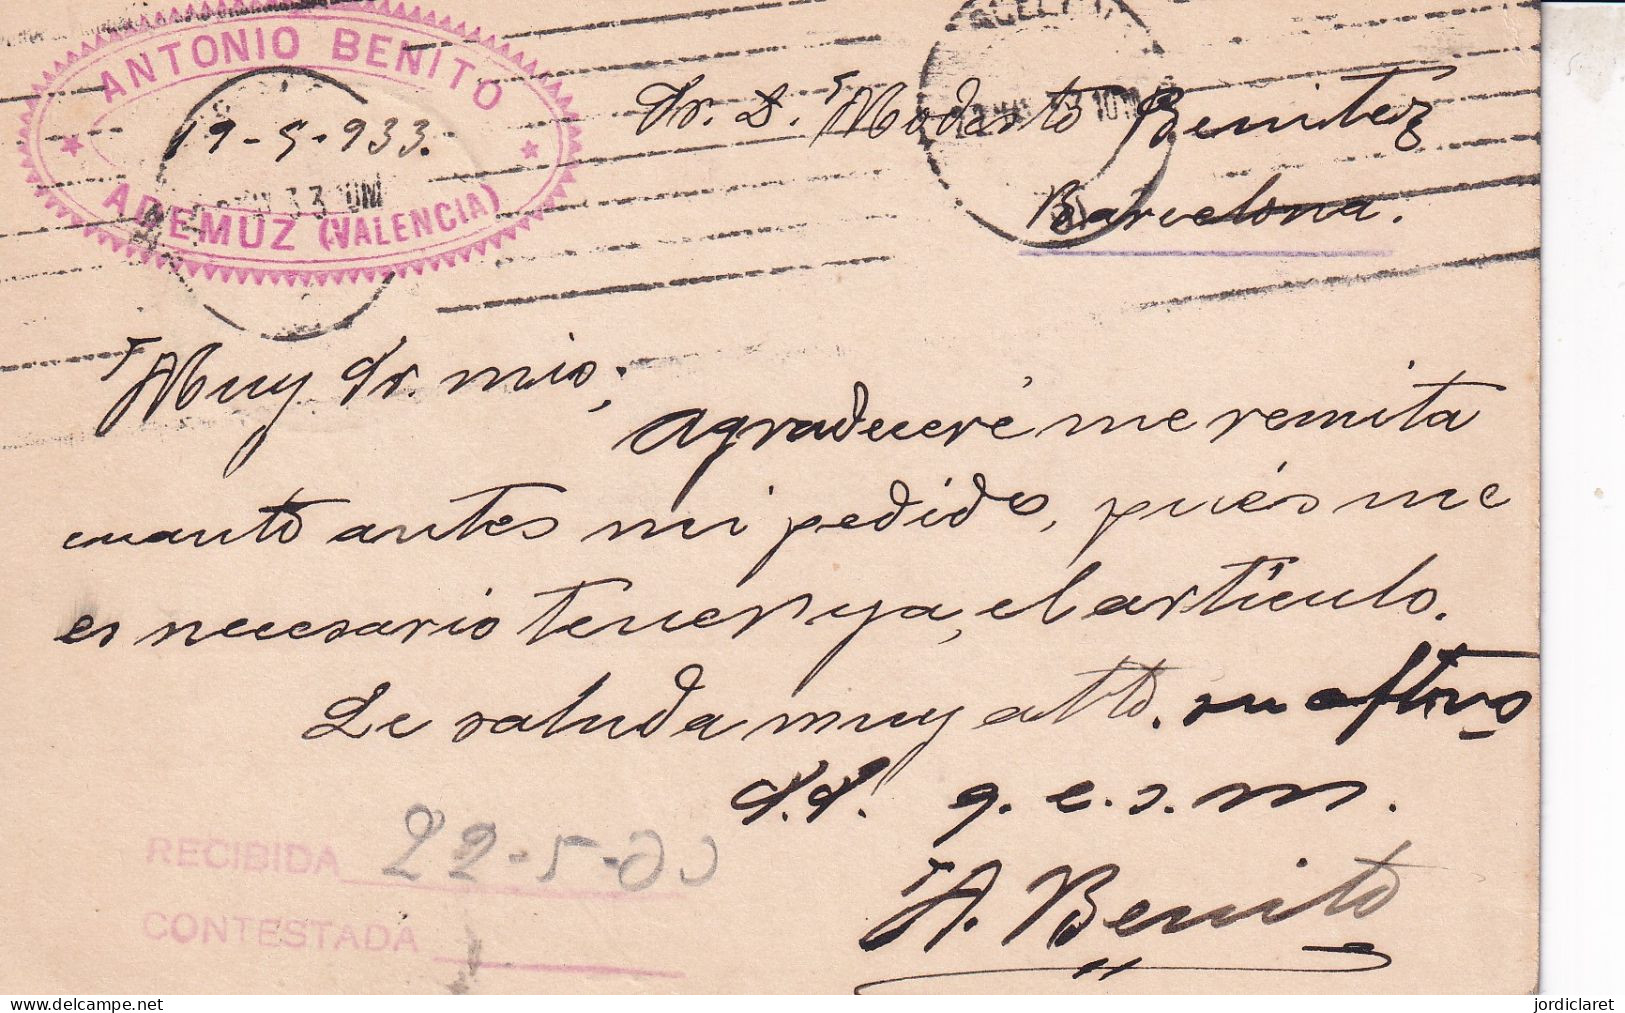 ANTONIO BENITO
19-5-933.
ADEMUZ (VALENCIA)
Sr. D. Modesto Benitez
Barcelona.
Muy Sr. mio;
agradeceré me remita
cuanto antes mi pedido, pués me
es necesario tener ya, el artículo.
Le saluda muy atto. su aftmo
S.S. q. e. s. m.
A. Benito
RECIBIDA 22-5-33
CONTESTADA
jordiclaret